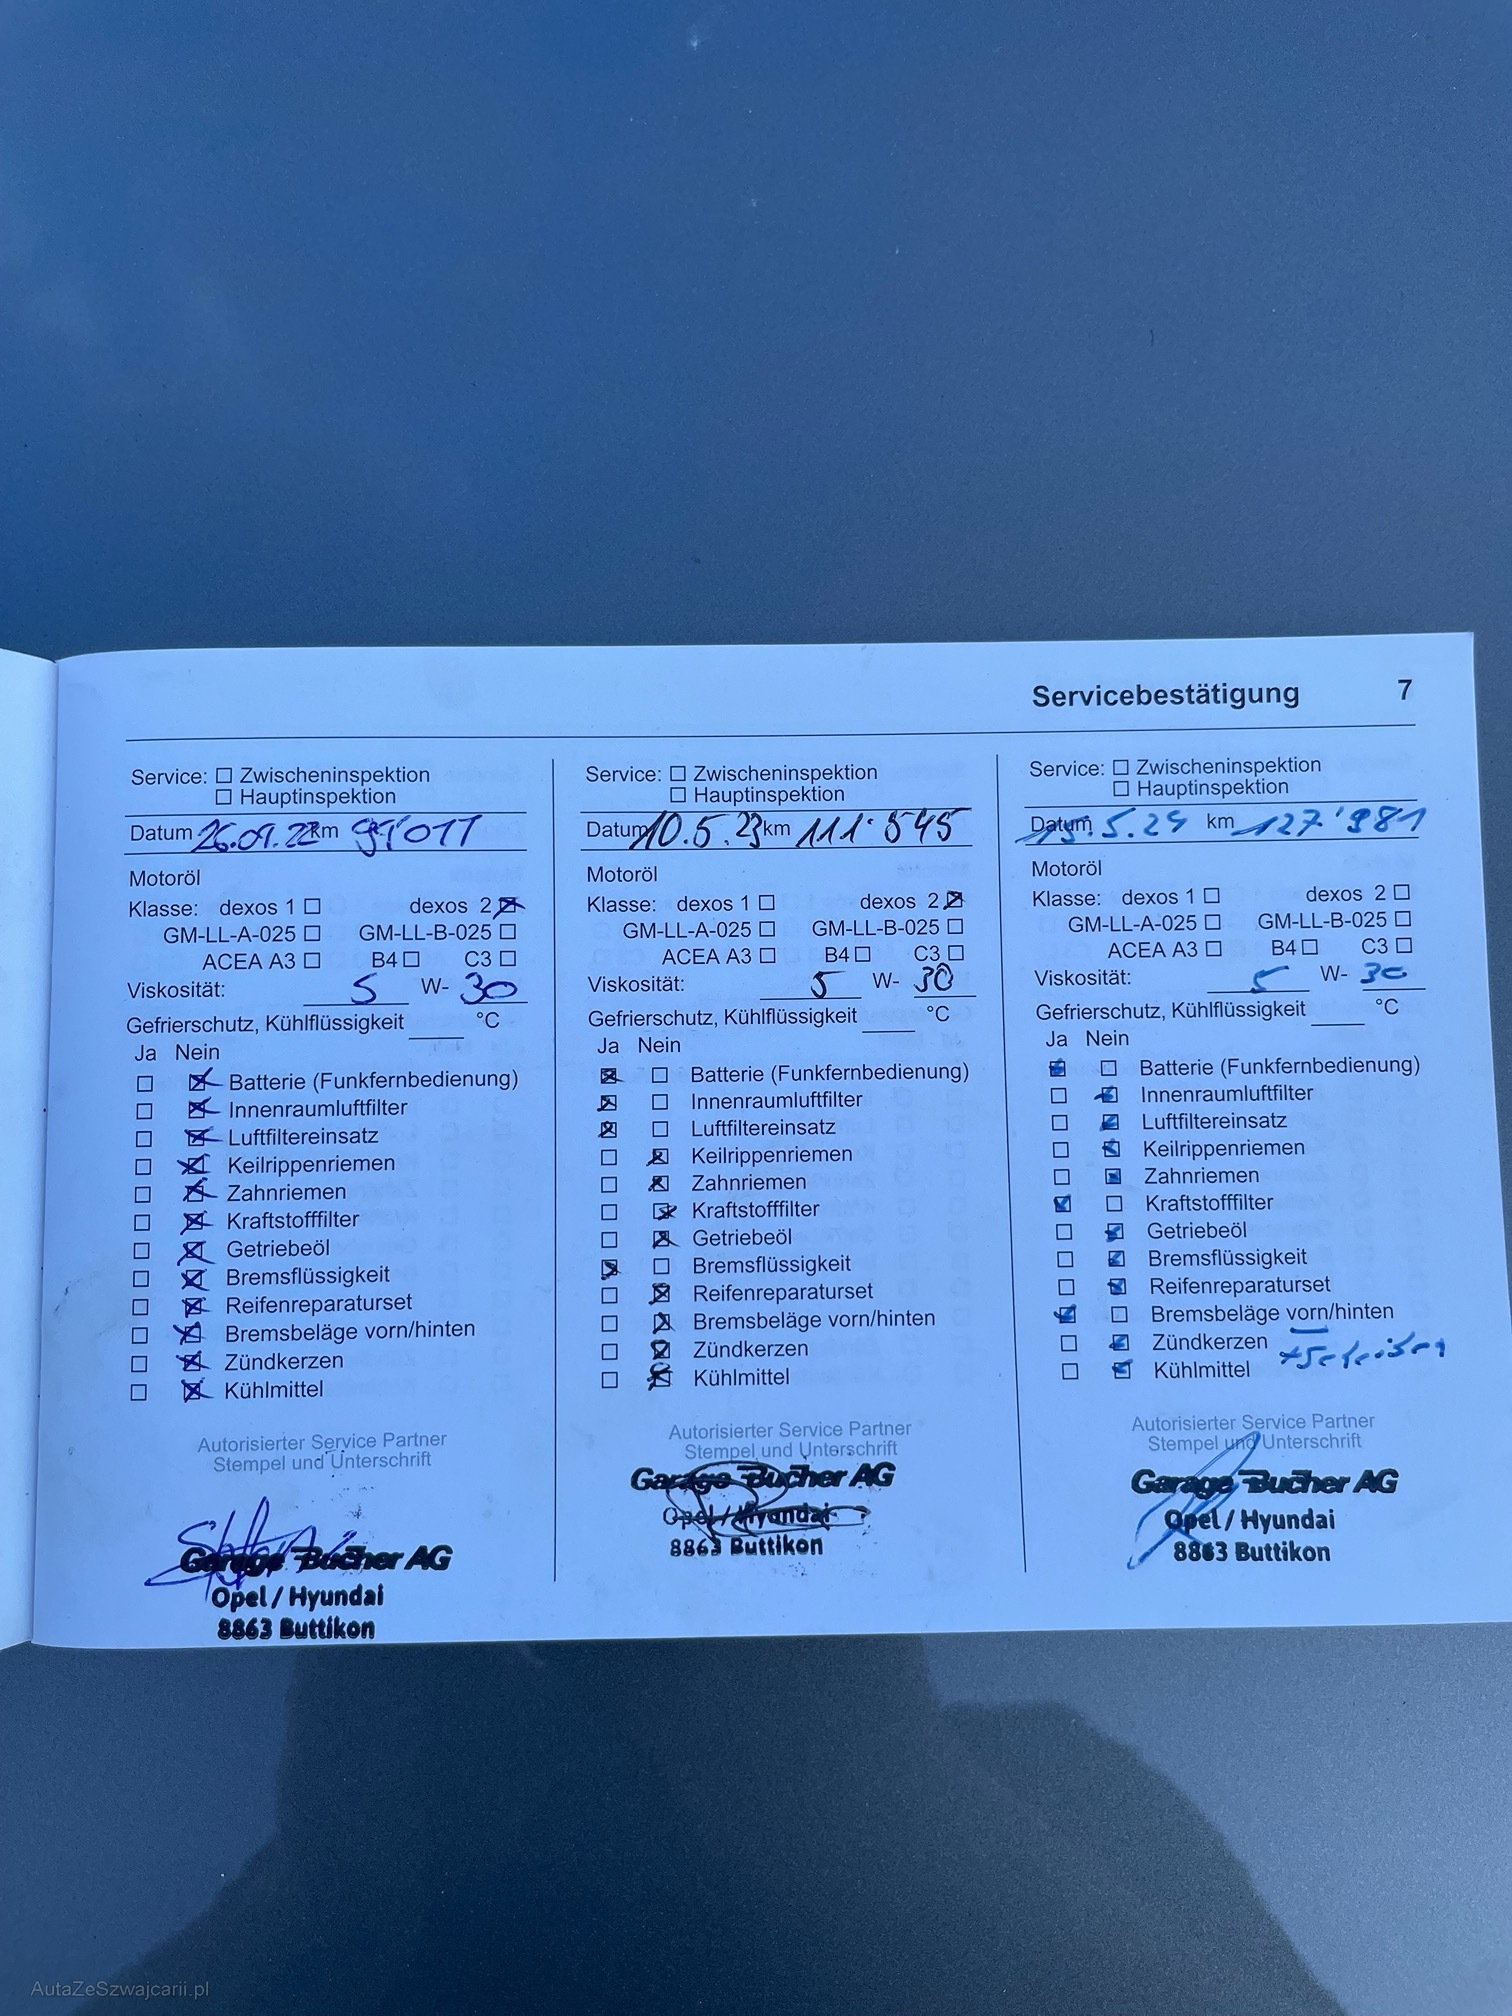 Servicebestätigung 7
Service: ☐ Zwischeninspektion
☐ Hauptinspektion
Datum 26.01.22 km
Motoröl
Klasse: dexos 1 ☐ dexos 2 ☒
GM-LL-A-025 ☐ GM-LL-B-025 ☐
ACEA A3 ☐ B4 ☐ C3 ☐
Viskosität: 5 W- 30
Gefrierschutz, Kühlflüssigkeit ____ °C
Ja Nein
☐ ☒ Batterie (Funkfernbedienung)
☐ ☒ Innenraumluftfilter
☐ ☒ Luftfiltereinsatz
☐ ☒ Keilrippenriemen
☐ ☒ Zahnriemen
☐ ☒ Kraftstofffilter
☐ ☒ Getriebeöl
☐ ☒ Bremsflüssigkeit
☐ ☒ Reifenreparaturset
☐ ☒ Bremsbeläge vorn/hinten
☐ ☒ Zündkerzen
☐ ☒ Kühlmittel
Autorisierter Service Partner
Stempel und Unterschrift
Garage Bucher AG
Opel / Hyundai
8863 Buttikon
Service: ☐ Zwischeninspektion
☐ Hauptinspektion
Datum 10.5.23 km 111'545
Motoröl
Klasse: dexos 1 ☐ dexos 2 ☒
GM-LL-A-025 ☐ GM-LL-B-025 ☐
ACEA A3 ☐ B4 ☐ C3 ☐
Viskosität: 5 W- 30
Gefrierschutz, Kühlflüssigkeit ____ °C
Ja Nein
☒ ☐ Batterie (Funkfernbedienung)
☒ ☐ Innenraumluftfilter
☒ ☐ Luftfiltereinsatz
☐ ☒ Keilrippenriemen
☐ ☒ Zahnriemen
☐ ☒ Kraftstofffilter
☐ ☒ Getriebeöl
☒ ☐ Bremsflüssigkeit
☐ ☒ Reifenreparaturset
☐ ☒ Bremsbeläge vorn/hinten
☐ ☒ Zündkerzen
☐ ☒ Kühlmittel
Autorisierter Service Partner
Stempel und Unterschrift
Garage Bucher AG
Opel / Hyundai
8863 Buttikon
Service: ☐ Zwischeninspektion
☐ Hauptinspektion
Datum 15.5.24 km 127'981
Motoröl
Klasse: dexos 1 ☐ dexos 2 ☐
GM-LL-A-025 ☐ GM-LL-B-025 ☐
ACEA A3 ☐ B4 ☐ C3 ☐
Viskosität: 5 W- 30
Gefrierschutz, Kühlflüssigkeit ____ °C
Ja Nein
☒ ☐ Batterie (Funkfernbedienung)
☐ ☒ Innenraumluftfilter
☐ ☒ Luftfiltereinsatz
☐ ☒ Keilrippenriemen
☐ ☒ Zahnriemen
☒ ☐ Kraftstofffilter
☐ ☒ Getriebeöl
☐ ☒ Bremsflüssigkeit
☐ ☒ Reifenreparaturset
☒ ☐ Bremsbeläge vorn/hinten
☐ ☒ Zündkerzen + Scheiben
☐ ☒ Kühlmittel
Autorisierter Service Partner
Stempel und Unterschrift
Garage Bucher AG
Opel / Hyundai
8863 Buttikon
AutaZeSzwajcarii.pl